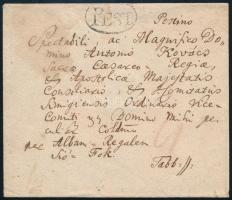 PEST
Pestino
Spectabili ac Magnifico Do-
mino Antonio Kovács
Sacrae Caesareo Regiae,
et Apostolicae Majestatis
Consiliario, et Comitatus
Ordinario Vice-
Comiti Domino Mihi
per Albam Regalem
Sió-Fok. Tabb